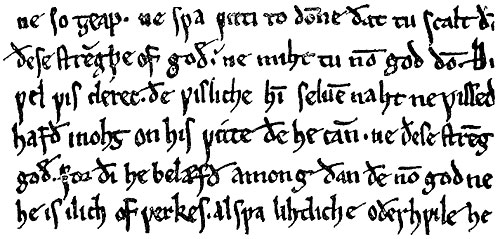 ne so ȝeap. ne sƿa ƿitti to dōne ðat tu scalt ði
ðese strēgþe of godi. ne miht tu nō god dō. Bi
ƿel ƿis clerec. ðe ƿisliche hī seluē naht ne ƿilleð
hafð inohg on his ƿitte ðe he cān. ne ðese strēg
god. for ði he belæfð among ðan ðe nō god ne
he is ilich of ƿerkes. alsƿa lihtliche oðerhƿile he